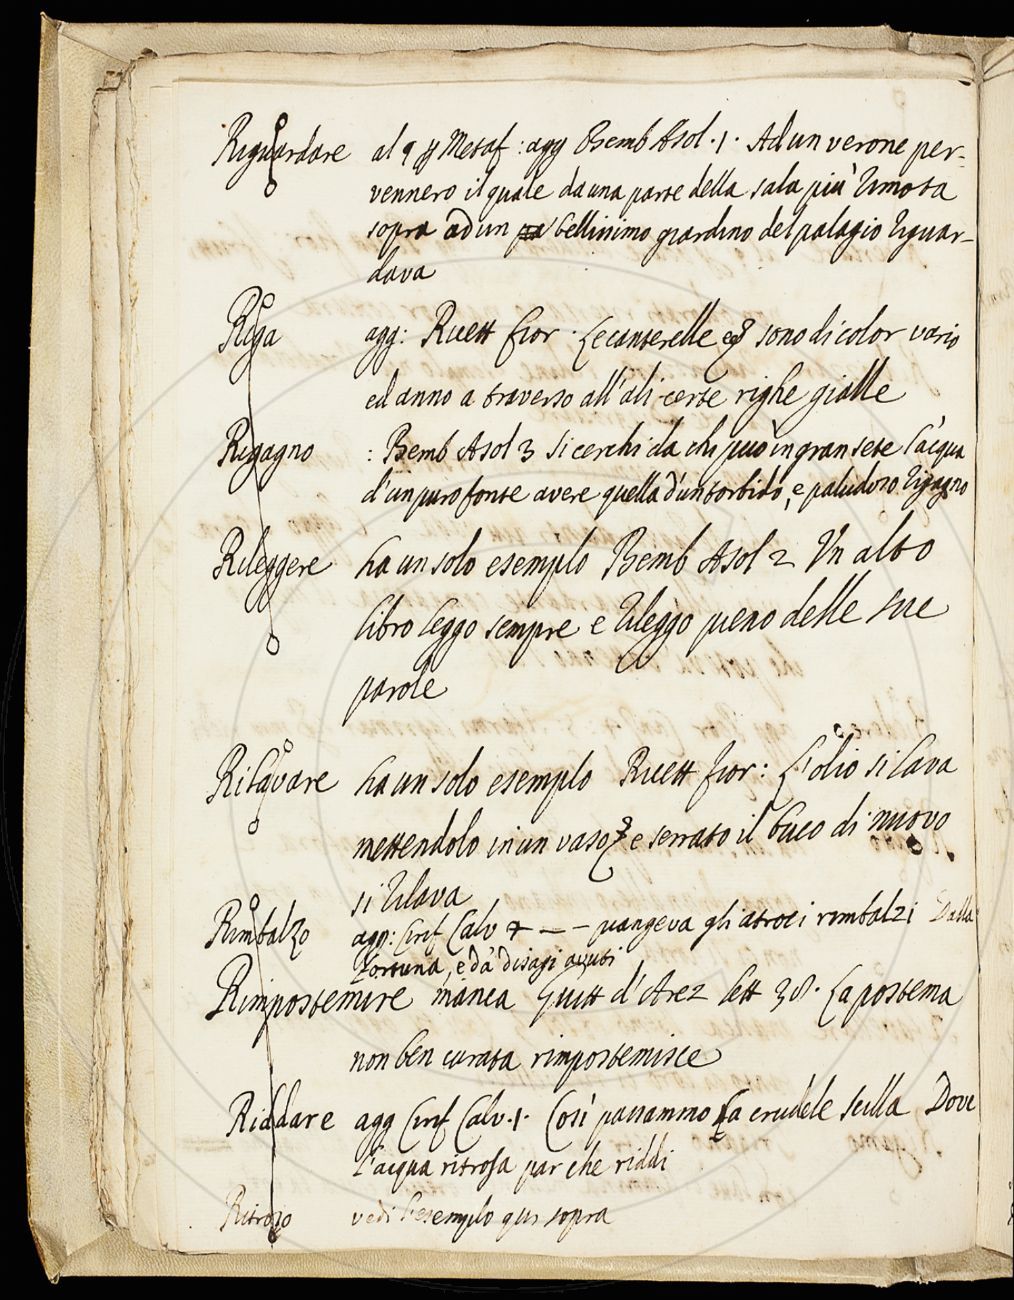 Riguardare al 9 § Metaf: agg Bemb Asol. 1. Ad un verone per-
vennero il quale da una parte della sala più rimota
sopra ad un bellissimo giardino del palagio riguar-
dava
Riga agg: Ricett fior. Le canterelle eç sono di color vario
ed anno a traverso all'ali certe righe gialle
Rigagno : Bemb Asol 3 Si cerchi da chi può in gran sete l'acqua
d'un puro fonte avere quella d'un torbido, e paludoso rigagno
Rileggere ha un solo esemplo Bemb Asol 2 Un alto
libro leggo sempre e rileggo pieno delle sue
parole
Rilavare ha un solo esemplo Ricett fior: L'olio si lava
mettendolo in un vaso ç e serrato il buco di nuovo
si rilava
Rimbalzo agg: Cirif Calv 4 — – piangeva gli atroci rimbalzi Dalla
Fortuna, e da' disagi avuti
Rimpostemire manca Guitt d'Arez lett 38. La postema
non ben curata rimpostemisce
Riddare agg Cirif Calv. 1. Così passammo La crudele Scilla Dove
L'acqua ritrosa par che riddi
Ritroso vedi l'esemplo qui sopra